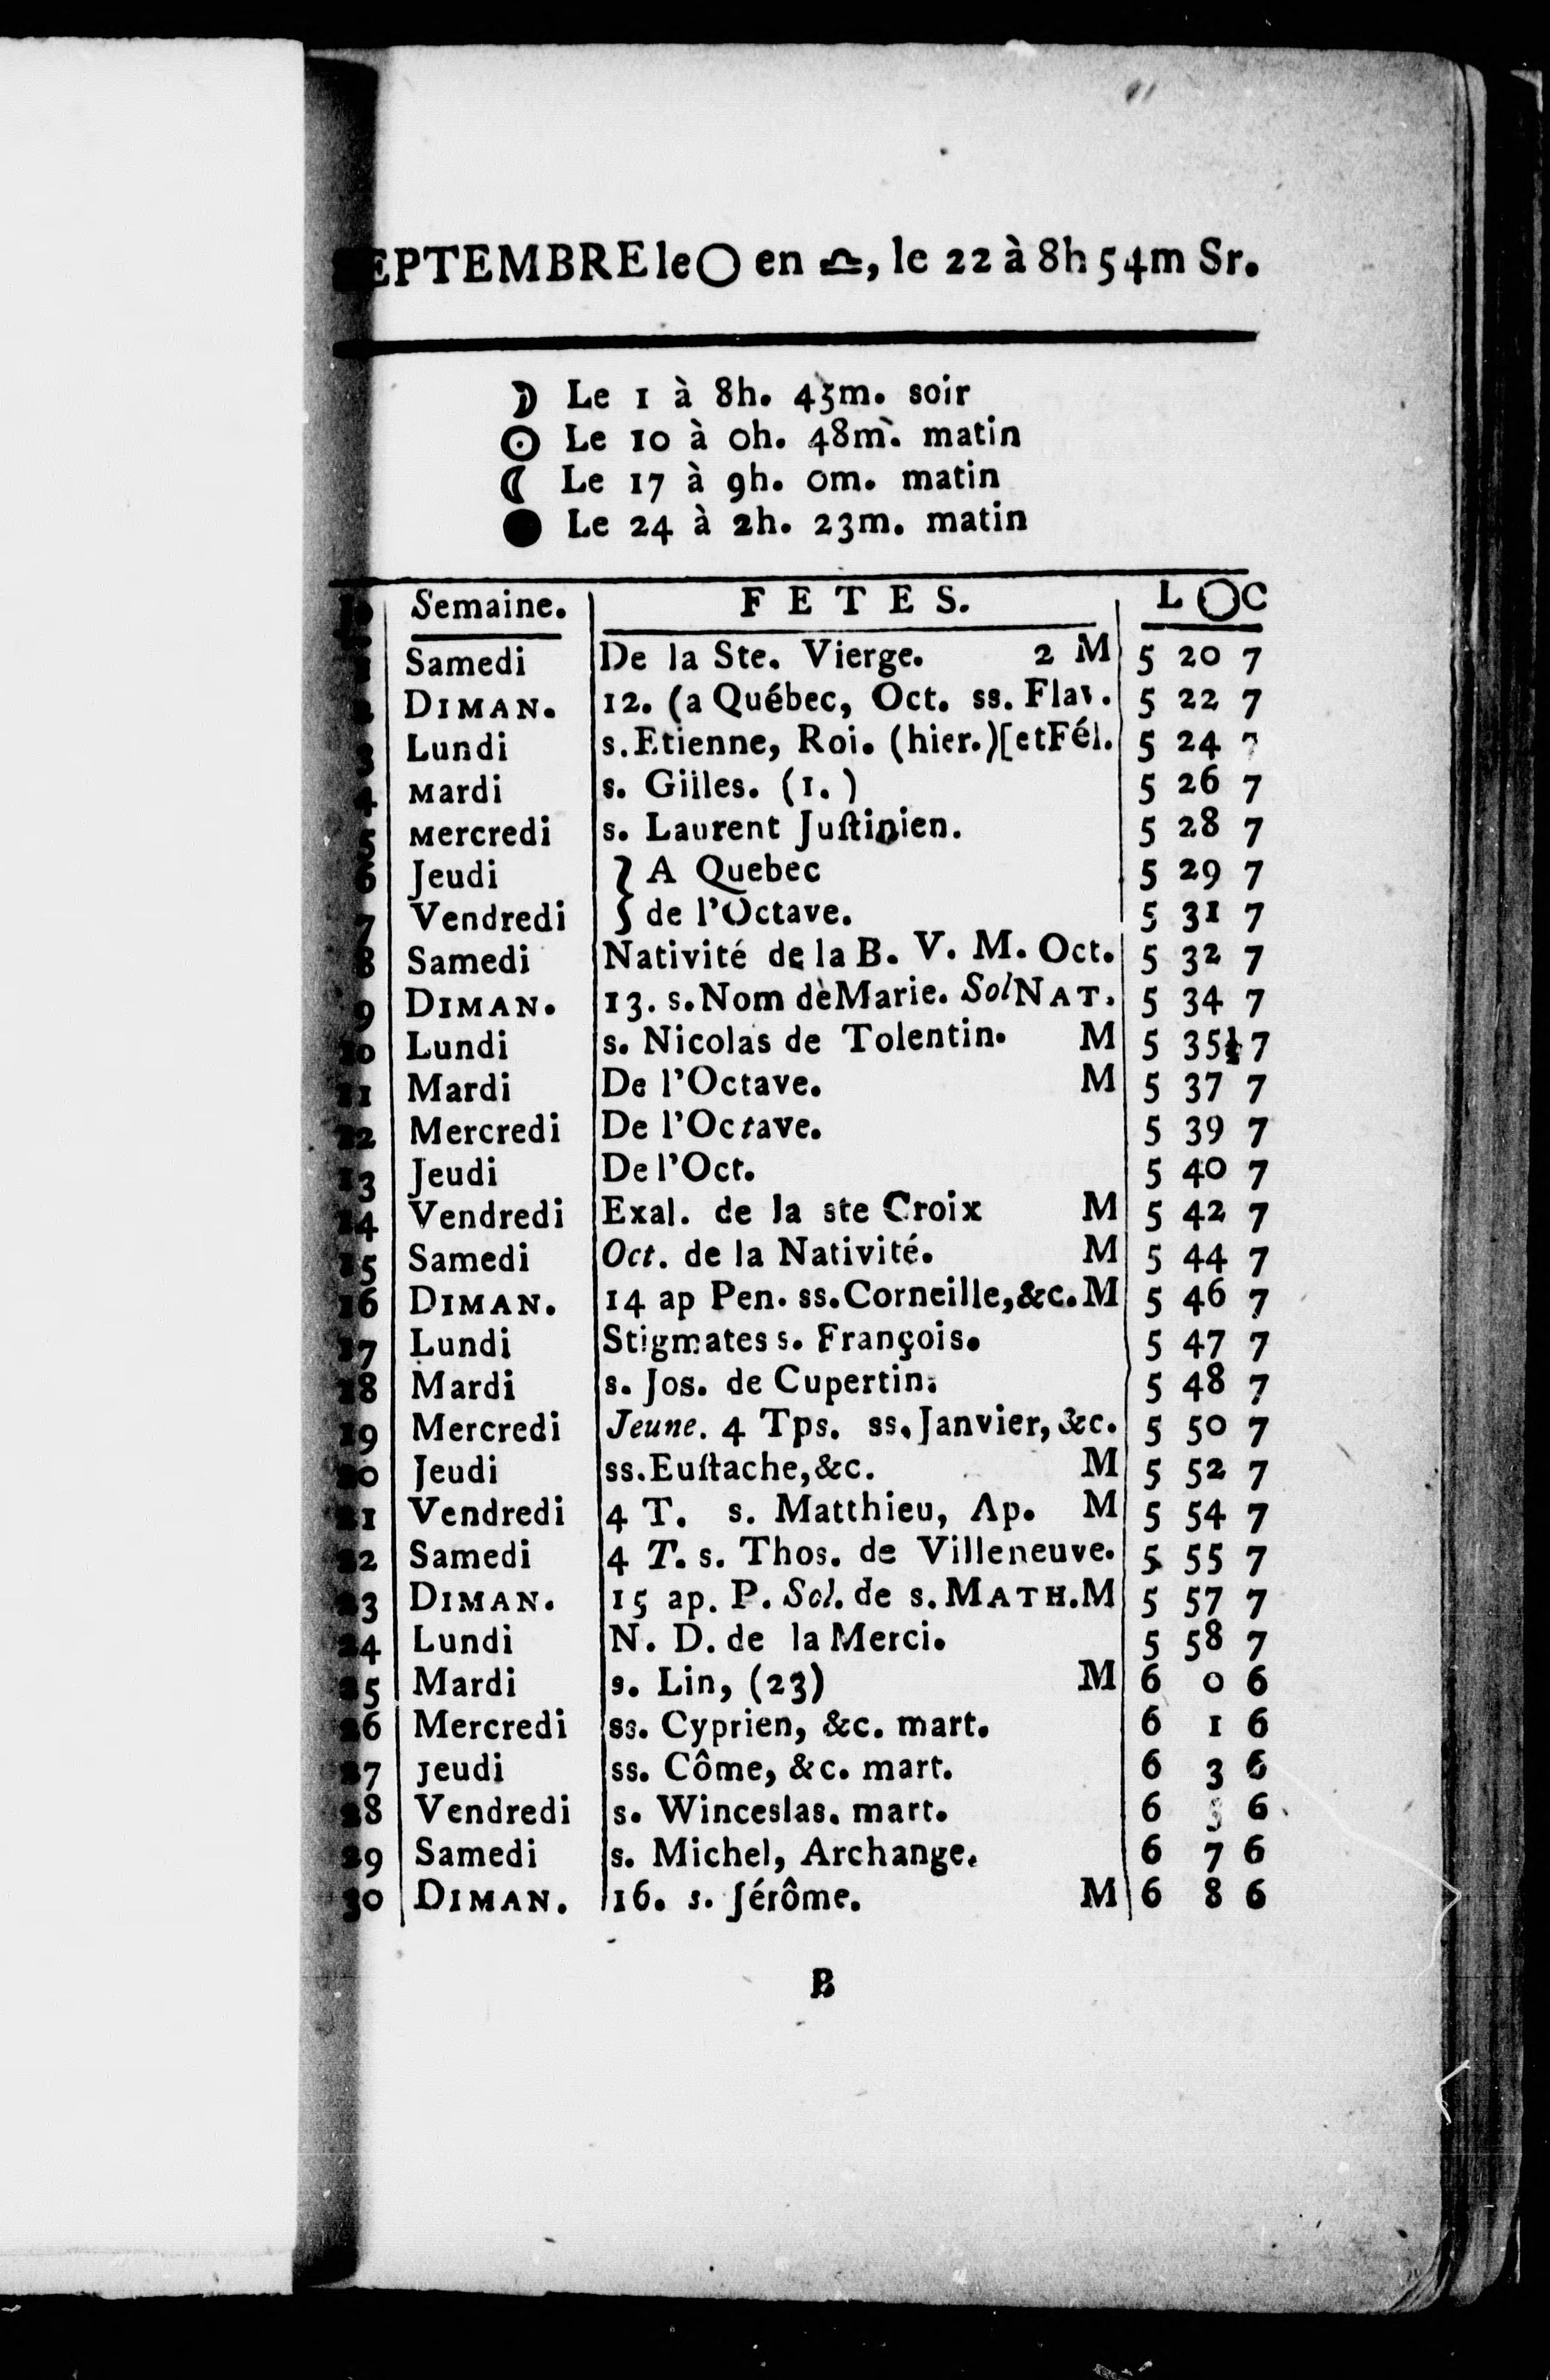 SEPTEMBRE le ○ en ♎, le 22 à 8h 54m Sr.
☽ Le 1 à 8h. 45m. soir
☉ Le 10 à 0h. 48m. matin
☾ Le 17 à 9h. 0m. matin
● Le 24 à 2h. 23m. matin
Semaine. F E T E S. L ○ C
1 Samedi De la Ste. Vierge. 2 M 5 20 7
2 DIMAN. 12. (a Québec, Oct. ss. Flav. 5 22 7
3 Lundi s. Etienne, Roi. (hier.) [et Fél. 5 24 7
4 Mardi s. Gilles. (1.) 5 26 7
5 Mercredi s. Laurent Juſtinien. 5 28 7
6 Jeudi } A Quebec 5 29 7
7 Vendredi } de l'Octave. 5 31 7
8 Samedi Nativité de la B. V. M. Oct. 5 32 7
9 DIMAN. 13. s. Nom dè Marie. Sol NAT. 5 34 7
10 Lundi s. Nicolas de Tolentin. M 5 35½ 7
11 Mardi De l'Octave. M 5 37 7
12 Mercredi De l'Octave. 5 39 7
13 Jeudi De l'Oct. 5 40 7
14 Vendredi Exal. de la ste Croix M 5 42 7
15 Samedi Oct. de la Nativité. M 5 44 7
16 DIMAN. 14 ap Pen. ss. Corneille, &c. M 5 46 7
17 Lundi Stigmates s. François. 5 47 7
18 Mardi s. Jos. de Cupertin. 5 48 7
19 Mercredi Jeune. 4 Tps. ss. Janvier, &c. 5 50 7
20 Jeudi ss. Euſtache, &c. M 5 52 7
21 Vendredi 4 T. s. Matthieu, Ap. M 5 54 7
22 Samedi 4 T. s. Thos. de Villeneuve. 5 55 7
23 DIMAN. 15 ap. P. Sol. de s. MATH. M 5 57 7
24 Lundi N. D. de la Merci. 5 58 7
25 Mardi s. Lin, (23) M 6 0 6
26 Mercredi ss. Cyprien, &c. mart. 6 1 6
27 Jeudi ss. Côme, &c. mart. 6 3 6
28 Vendredi s. Winceslas. mart. 6 5 6
29 Samedi s. Michel, Archange. 6 7 6
30 DIMAN. 16. s. Jérôme. M 6 8 6
B